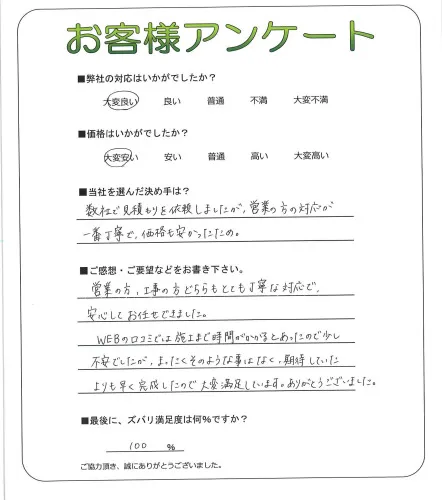 お客様アンケート
■弊社の対応はいかがでしたか？
大変良い 良い 普通 不満 大変不満
■価格はいかがでしたか？
大変安い 安い 普通 高い 大変高い
■当社を選んだ決め手は？
数社で見積もりを依頼しましたが、営業の方の対応が
一番丁寧で、価格も安かったため。
■ご感想・ご要望などをお書き下さい。
営業の方、工事の方どちらもとても丁寧な対応で、
安心してお任せできました。
WEBの口コミでは施工まで時間がかかるとあったので少し
不安でしたが、まったくそのような事はなく、期待していた
よりも早く完成したので大変満足しています。ありがとうございました。
■最後に、ズバリ満足度は何%ですか？
100 %
ご協力頂き、誠にありがとうございました。